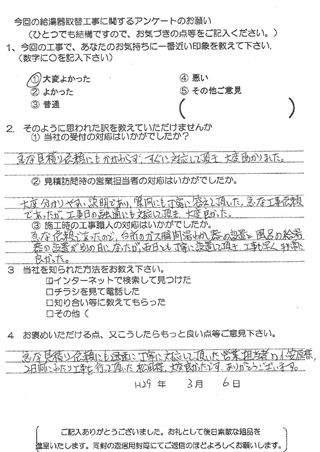 今回の給湯器取替工事に関するアンケートのお願い
（ひとつでも結構ですので、お気づきの点等をご記入ください。）
1、今回の工事で、あなたのお気持ちに一番近い印象を教えて下さい。
（数字に○を記入下さい）
①大変よかった ④悪い
②よかった ⑤その他ご意見
③普通 （ ）
2. そのように思われた訳を教えていただけませんか
① 当社の受付の対応はいかがでしたか。
急な見積り依頼にもかかわらず、すぐに対応して頂き大変助かりました。
② 見積訪問時の営業担当者の対応はいかがでしたか。
大変分かりやすい説明であり、質問にも丁寧に答えて頂いた。急な工事依頼
であったが、工事日の融通にも対応して頂き大変良かった。
③ 施工時の工事職人の対応はいかがでしたか。
急な依頼となったので、台所のガス瞬間湯わかし器の設置と風呂の給湯
器の設置が別の日になったが、両日とも丁寧に設置して頂き工事も早く
良かった。
3 当社を知られた方法をお教え下さい。
☑インターネットで検索して見つけた
□チラシを見て電話した
□知り合い等に教えてもらった
□その他（
4 お褒めいただける点、又こうしたらもっと良い点等ご意見下さい。
急な見積り依頼にも迅速に丁寧に対応して頂いた営業担当者の
2日間にわたり工事を行って頂いた 大変良かったです。ありがとうございます。
H29 年 3 月 6 日
ご記入ありがとうございました。お礼として後日素敵な粗品を
進呈いたします。同封の返信用封筒にてご返信のほどよろしくお願いします。